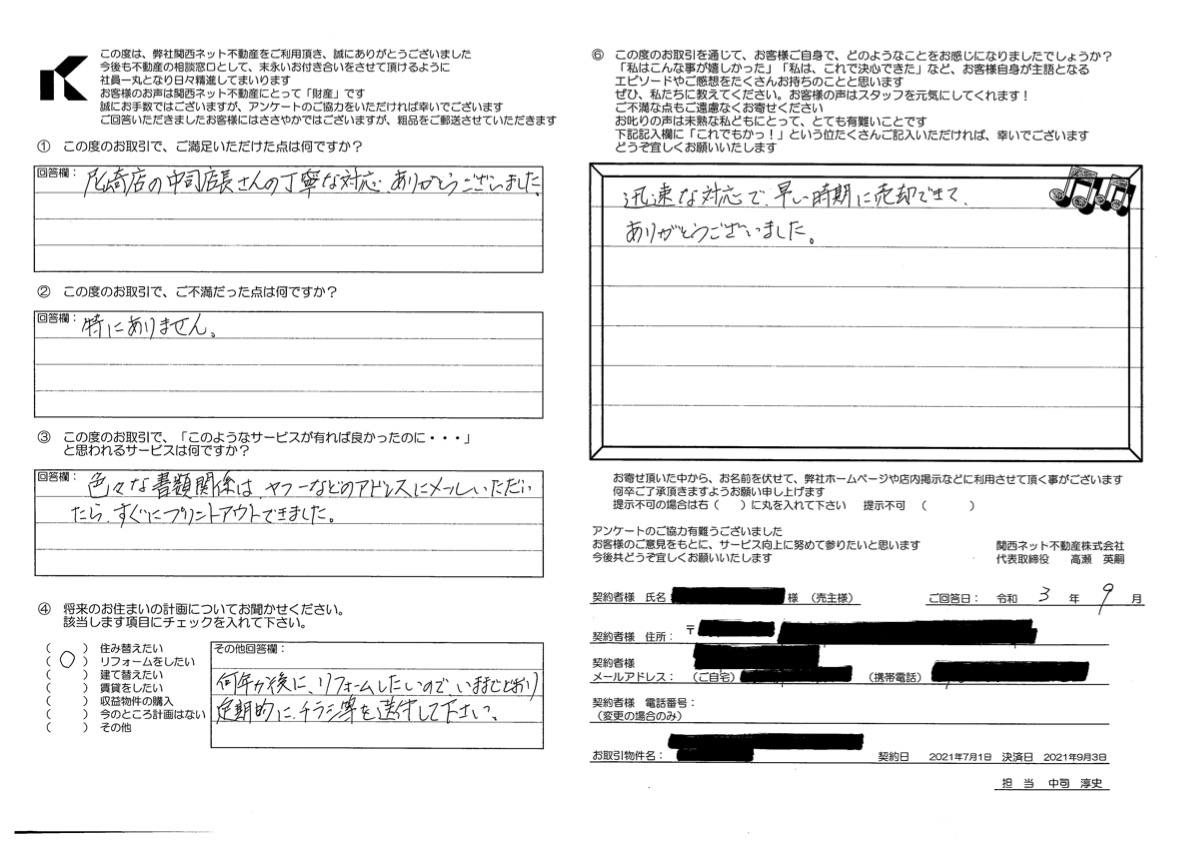 この度は、弊社関西ネット不動産をご利用頂き、誠にありがとうございました
今後も不動産の相談窓口として、末永いお付き合いをさせて頂けるように
社員一丸となり日々精進してまいります
お客様のお声は関西ネット不動産にとって「財産」です
誠にお手数ではございますが、アンケートのご協力をいただければ幸いでございます
ご回答いただきましたお客様にはささやかではございますが、粗品をご郵送させていただきます
① この度のお取引で、ご満足いただけた点は何ですか？
回答欄：
尼崎店の中司店長さんの丁寧な対応、ありがとうございました
② この度のお取引で、ご不満だった点は何ですか？
回答欄：
特にありません。
③ この度のお取引で、「このようなサービスが有れば良かったのに・・・」
と思われるサービスは何ですか？
回答欄：
色々な書類関係は、ヤフーなどのアドレスにメールいただい
たら、すぐにプリントアウトできました。
④ 将来のお住まいの計画についてお聞かせください。
該当します項目にチェックを入れて下さい。
（　　）住み替えたい
（ ○ ）リフォームをしたい
（　　）建て替えたい
（　　）賃貸をしたい
（　　）収益物件の購入
（　　）今のところ計画はない
（　　）その他
その他回答欄：
何年か後に、リフォームしたいので、いままでどおり
定期的に、チラシ等を送付して下さい。
⑥ この度のお取引を通じて、お客様ご自身で、どのようなことをお感じになりましたでしょうか？
「私はこんな事が嬉しかった」「私は、これで決心できた」など、お客様自身が主語となる
エピソードやご感想をたくさんお持ちのことと思います
ぜひ、私たちに教えてください。お客様の声はスタッフを元気にしてくれます！
ご不満な点もご遠慮なくお寄せください
お叱りの声は未熟な私どもにとって、とても有難いことです
下記記入欄に「これでもかっ！」という位たくさんご記入いただければ、幸いでございます
どうぞ宜しくお願いいたします
迅速な対応で、早い時期に売却できて、
ありがとうございました。
お寄せ頂いた中から、お名前を伏せて、弊社ホームページや店内掲示などに利用させて頂く事がございます
何卒ご了承頂きますようお願い申し上げます
提示不可の場合は右（　　）に丸を入れて下さい　提示不可　（　　　）
アンケートのご協力有難うございました
お客様のご意見をもとに、サービス向上に努めて参りたいと思います
今後共どうぞ宜しくお願いいたします
関西ネット不動産株式会社
代表取締役　高瀬　英嗣
契約者様 氏名：　様 （売主様）　ご回答日： 令和 3 年 9 月
契約者様 住所： 〒
契約者様
メールアドレス： （ご自宅）　（携帯電話）
契約者様 電話番号：
（変更の場合のみ）
お取引物件名：　契約日　2021年7月1日　決済日　2021年9月3日
担 当　中司 淳史